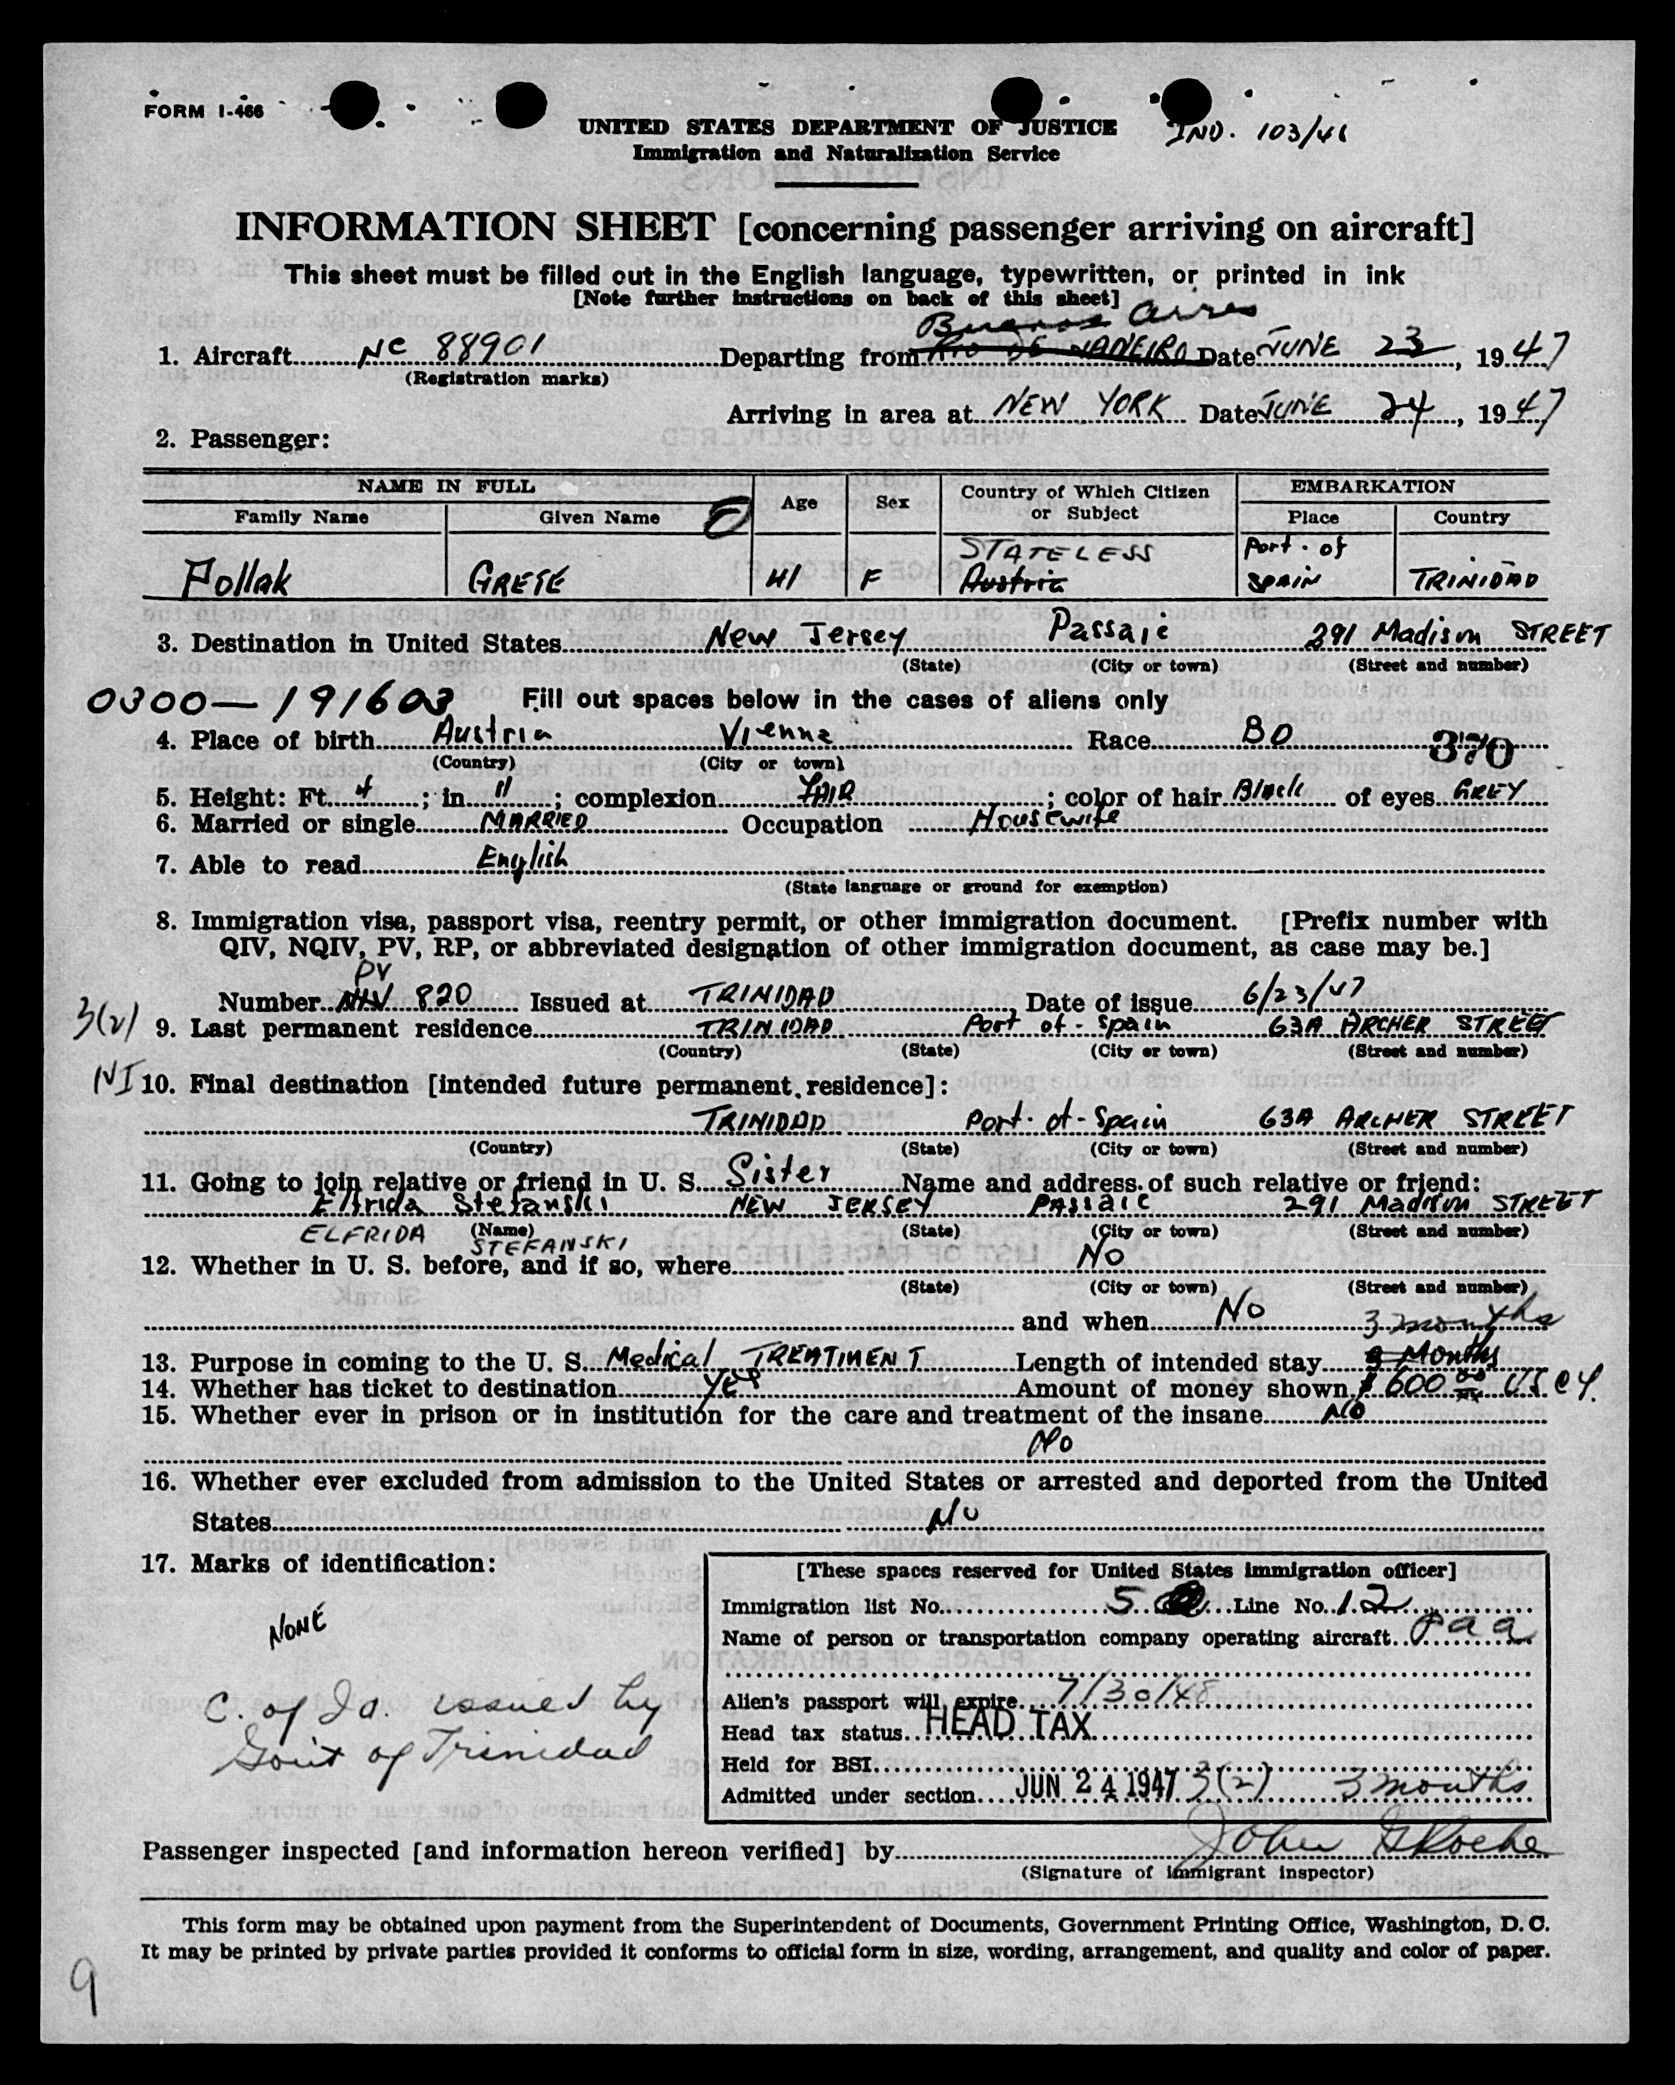 FORM I-466
UNITED STATES DEPARTMENT OF JUSTICE
IND. 103/46
Immigration and Naturalization Service
INFORMATION SHEET [concerning passenger arriving on aircraft]
This sheet must be filled out in the English language, typewritten, or printed in ink
[Note further instructions on back of this sheet]
Buenos Aires
1. Aircraft NC 88901 Departing from RIO DE JANEIRO Date JUNE 23, 1947
(Registration marks)
Arriving in area at NEW YORK Date JUNE 24, 1947
2. Passenger:
NAME IN FULL Age Sex Country of Which Citizen or Subject EMBARKATION
Family Name Given Name Place Country
STATELESS Port. of
Pollak GRETE 41 F Austria SPAIN TRINIDAD
3. Destination in United States New Jersey Passaic 291 Madison STREET
(State) (City or town) (Street and number)
0300-191603 Fill out spaces below in the cases of aliens only
4. Place of birth Austria Vienna Race BO 370
(Country) (City or town)
5. Height: Ft. 4; in. 11; complexion FAIR; color of hair Black of eyes GREY
6. Married or single MARRIED Occupation Housewife
7. Able to read English
(State language or ground for exemption)
8. Immigration visa, passport visa, reentry permit, or other immigration document. [Prefix number with
QIV, NQIV, PV, RP, or abbreviated designation of other immigration document, as case may be.]
PV
Number 820 Issued at TRINIDAD Date of issue 6/23/47
3(2) 9. Last permanent residence TRINIDAD Port of-Spain 63A ARCHER STREET
(Country) (State) (City or town) (Street and number)
NI 10. Final destination [intended future permanent residence]:
TRINIDAD Port-of-Spain 63A ARCHER STREET
(Country) (State) (City or town) (Street and number)
11. Going to join relative or friend in U. S. Sister Name and address of such relative or friend:
Elfrida Stefanski NEW JERSEY PASSAIC 291 Madison STREET
ELFRIDA (Name) (State) (City or town) (Street and number)
STEFANSKI
12. Whether in U. S. before, and if so, where NO
(State) (City or town) (Street and number)
and when No 3 months
13. Purpose in coming to the U. S. Medical TREATMENT Length of intended stay Months
14. Whether has ticket to destination Yes Amount of money shown $600 00 US cy.
15. Whether ever in prison or in institution for the care and treatment of the insane NO
No
16. Whether ever excluded from admission to the United States or arrested and deported from the United
States No
17. Marks of identification:
NONE
C. of Id. issued by
Govt of Trinidad
[These spaces reserved for United States immigration officer]
Immigration list No. 5 Line No. 12
Name of person or transportation company operating aircraft Paa
Alien's passport will expire 7/30/48
Head tax status HEAD TAX
Held for BSI
Admitted under section JUN 24 1947 3(2) 3 months
Passenger inspected [and information hereon verified] by John Roche
(Signature of immigrant inspector)
This form may be obtained upon payment from the Superintendent of Documents, Government Printing Office, Washington, D. C.
It may be printed by private parties provided it conforms to official form in size, wording, arrangement, and quality and color of paper.
9